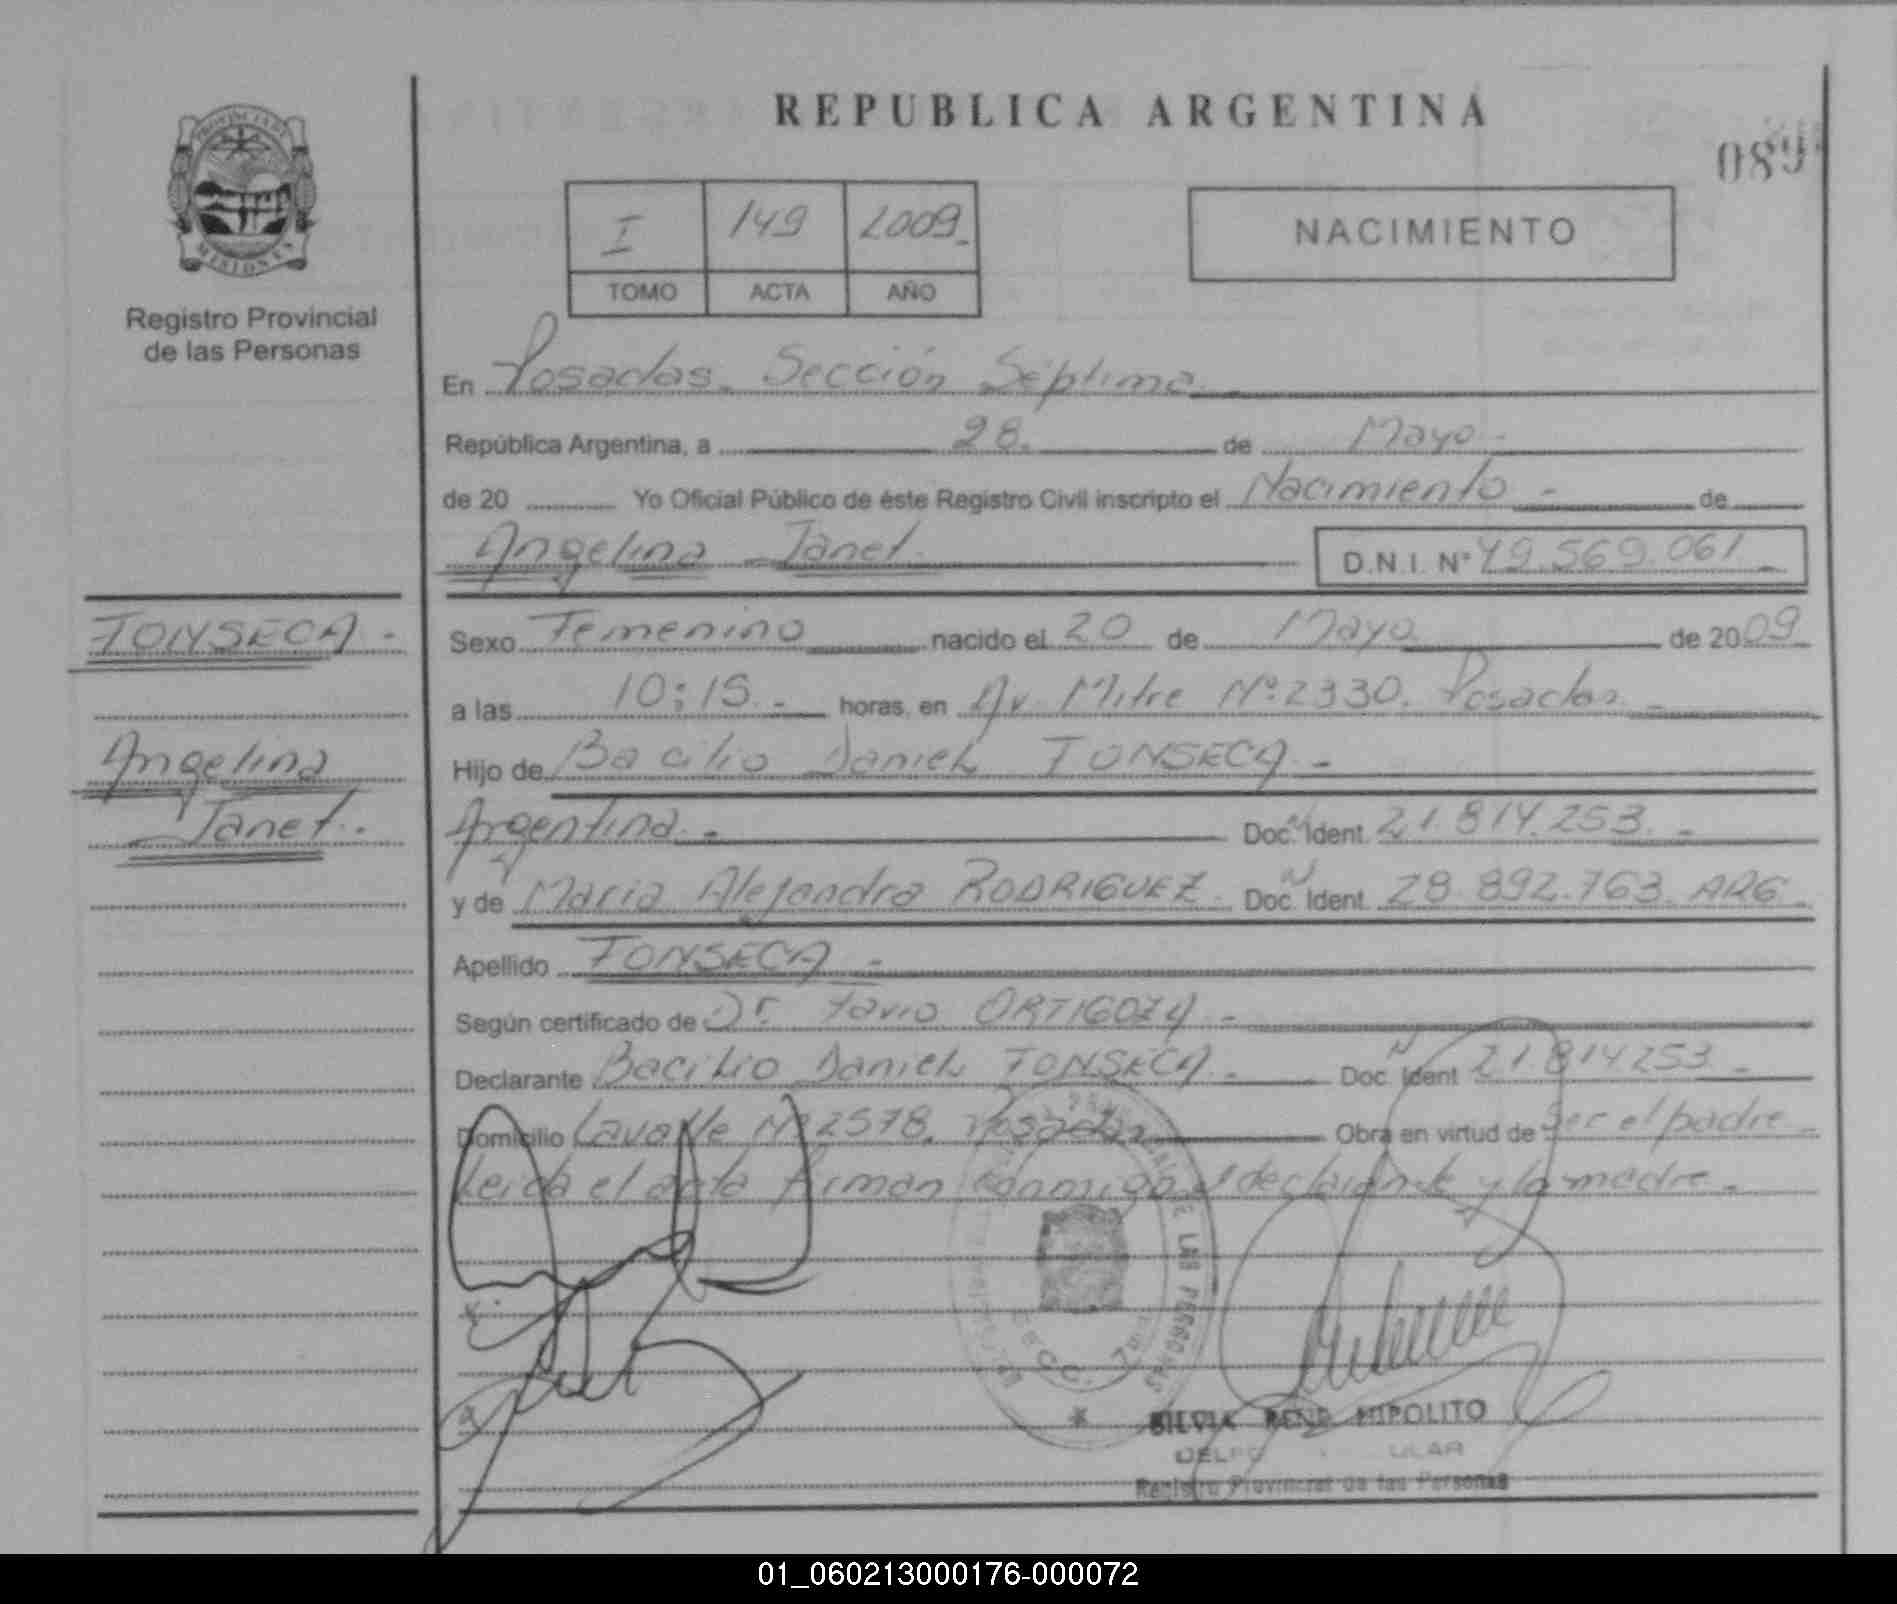 REPUBLICA ARGENTINA
089
PROVINCIA DE
MISIONES
Registro Provincial
de las Personas
I 149 2009
TOMO ACTA AÑO
NACIMIENTO
En Posadas. Sección Séptima
República Argentina, a 28. de Mayo
de 20 Yo Oficial Público de éste Registro Civil inscripto el Nacimiento de
Angelina Janet D.N.I. N° 49.569.061
FONSECA
Angelina
Janet
Sexo Femenino nacido el 20 de Mayo de 2009
a las 10:15 horas, en Av. Mitre Nº 2330. Posadas
Hijo de Bacilio Daniel FONSECA
Argentina Doc. Ident. 21.814.253
y de Maria Alejandra RODRIGUEZ Doc. Ident. 28.892.763 ARG
Apellido FONSECA
Según certificado de Dr. ORTIGOZA
Declarante Bacilio Daniel FONSECA Doc. Ident 21.814.253
Domicilio Lavalle Nº 2578. Posadas Obra en virtud de Ser el padre
Leida el acta firman conmigo el declarante y la madre
DE LAS PERSONAS
SECC.
SILVIA RENE HIPOLITO
Registro Provincial de las Personas
01_060213000176-000072